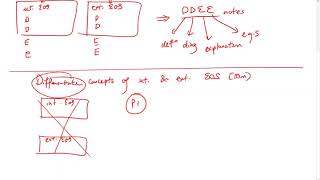 int. EOS
D
D
E
E
ext. EOS
D
D
E
E
⇒ DDEE notes
defn diag explanation e.g.s
Differentiate concepts of int. & ext. EOS (10m)
int. EOS
P1
ext. EOS